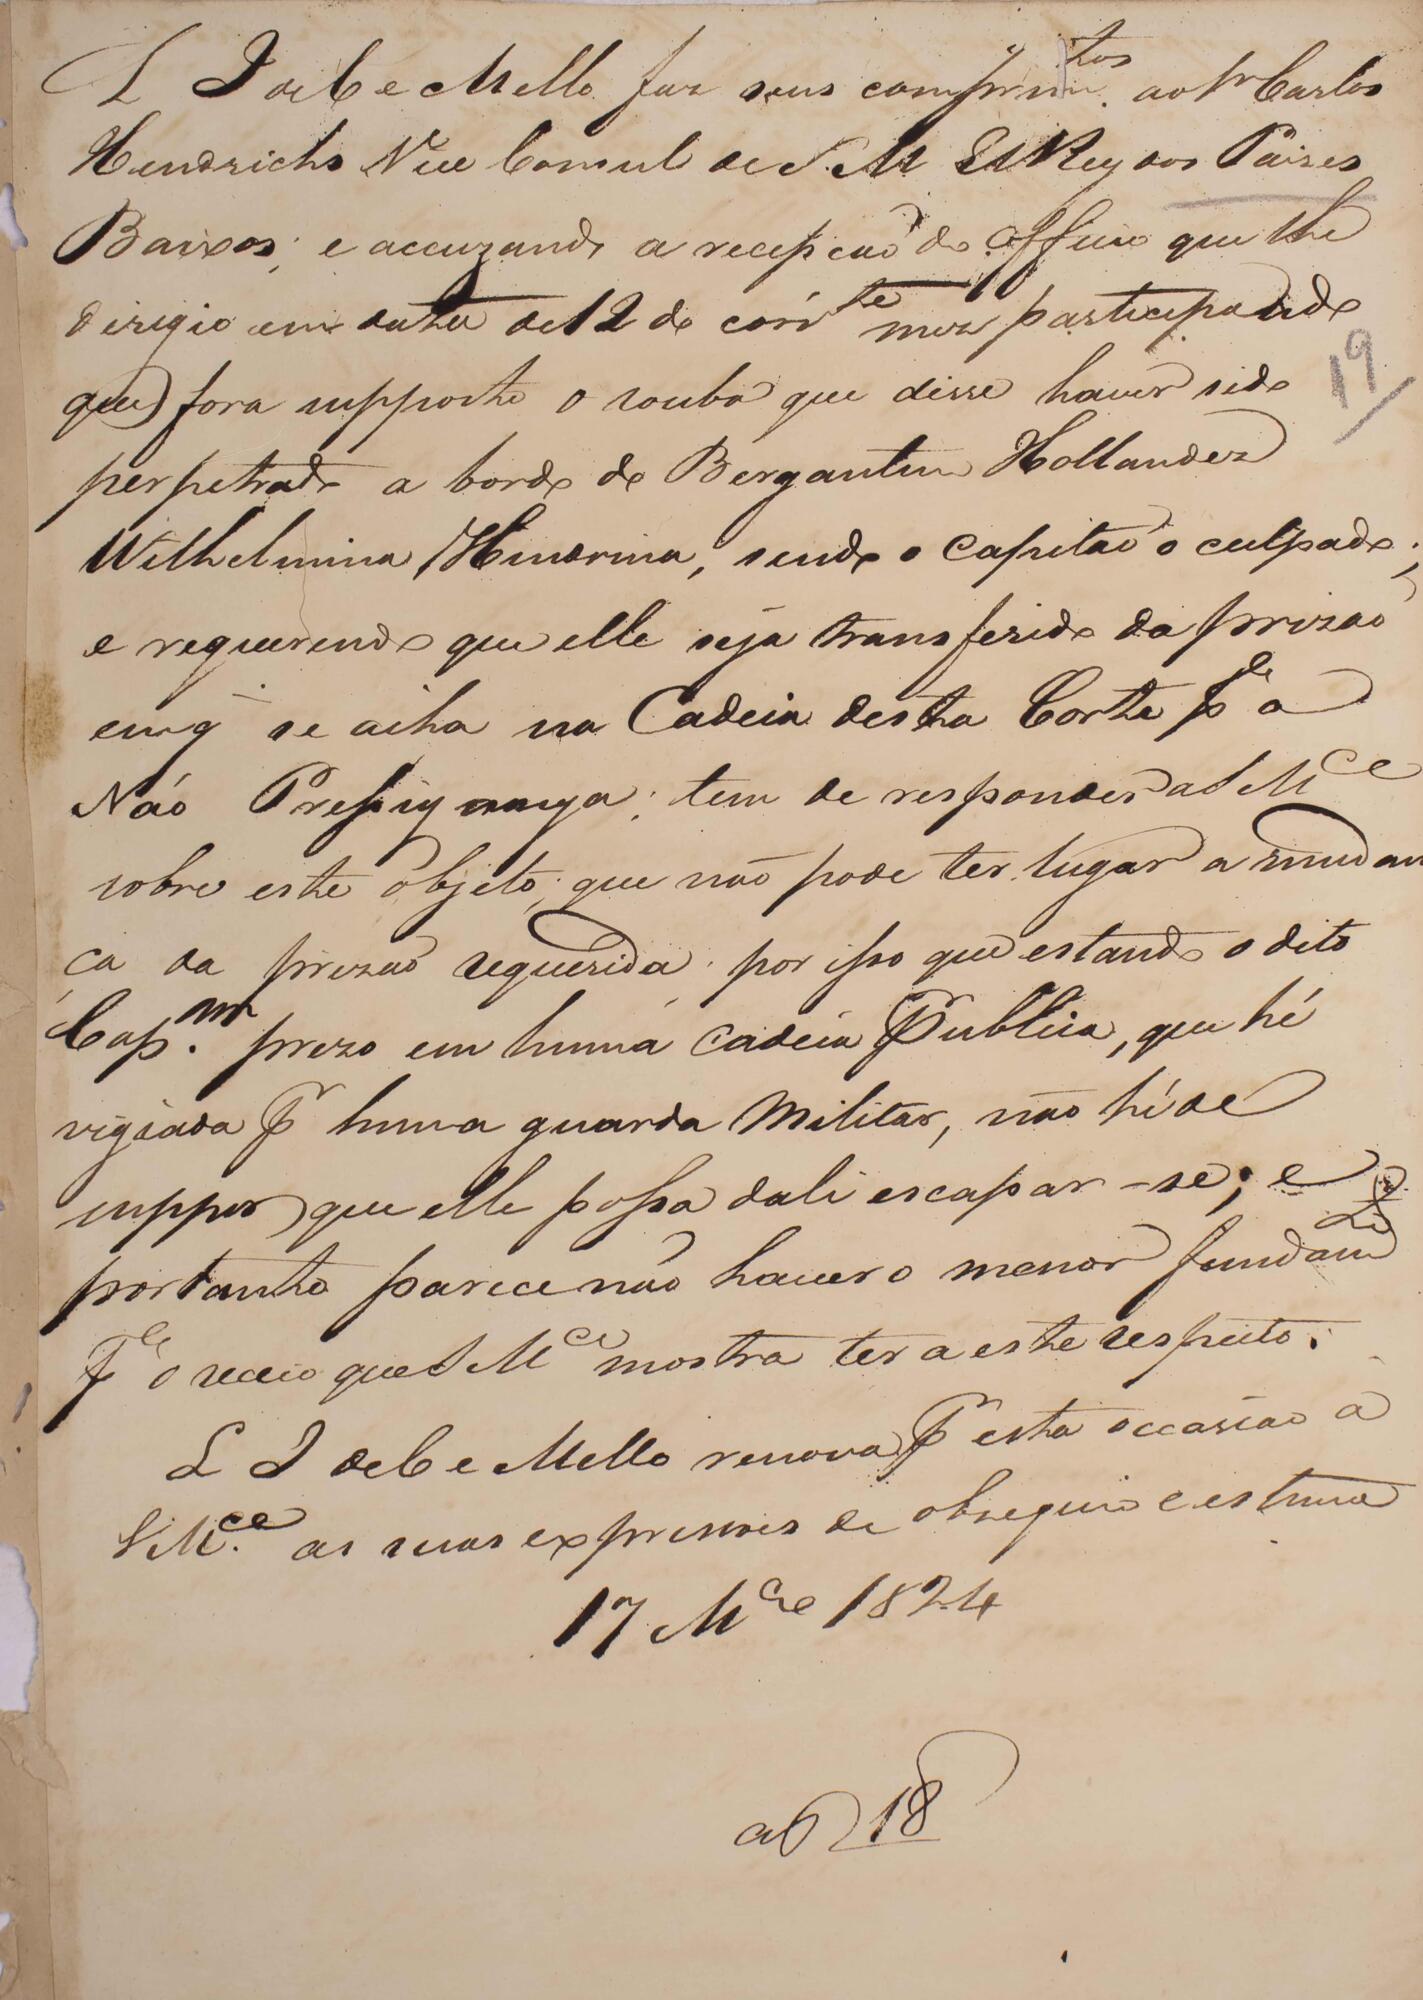 L J de C e Mello faz seus comprim.tos ao Sr Carlos
Hendrichs Vice Consul de S. M. El Rey dos Paizes
Baixos; e accuzando a recepção do officio que lhe
dirigio em data de 12 do corrte mez participando
que fora supposto o roubo que disse haver sido
19
perpetrado a bordo do Bergantim Hollandez
Wilhelmina Hendrina, sendo o Capitão o culpado;
e requerendo que elle seja transferido da prizão
em q̃ se acha na Cadeia desta Corte pa a
Náo Presiganga; tem de responder a S Mce
sobre este objeto, que não pode ter lugar a mudan
ça da prizão requerida por isso que estando o dito
Cap.m prezo em huma cadeia Publica, que hé
vigiada pr huma guarda Militar, não hé de
suppor que elle possa dali escapar-se; e
portanto parece não haver o menor fundamto
pa o receio que S Mce mostra ter a este respeito.
L J de C e Mello renova pr esta occasião a
S M.ce as suas expressoes de obsequio e estima
17 Mço 1824
18